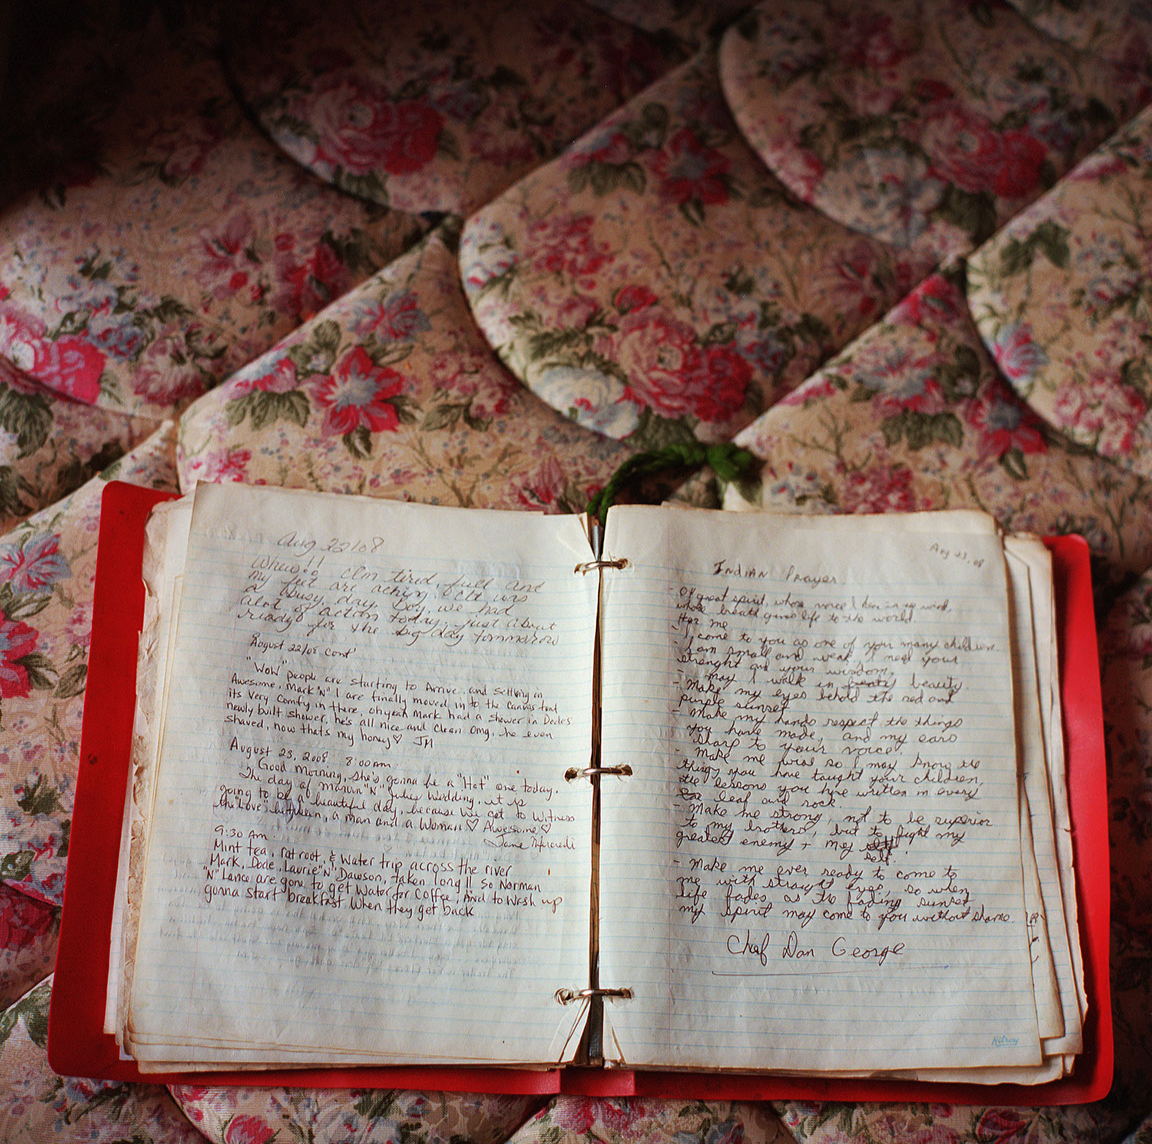 Aug 22/08
Whew!! I'm tired, full and
my feet are aching. It was
a busy day. Boy, we had
alot of action today. just about
ready for the big day tommorow
August 22/08 cont'
"Wow" people are starting to Arrive. and settling in
Awesome, Mark "N" I are finally moved in to the Canvas tent
its very comfy in there, oh yeah Mark had a shower in Dode's
newly built shower, he's all nice and Clean Omg, he even
shaved, now thats my honey♡ JM
August 23, 2008 8:00 am
Good Morning, She's gonna be a "Hot" one today.
The day of Marvin "N" Julies Wedding, it is
going to be a beautiful day, because we get to Witness
the love between, a man and a Woman ♡ Awesome ♡
9:30 Am.
Mint tea, ratroot, & Water trip across the river
Mark, Dode, Laurie "N" Dawson, taken long!! So Norman
"N" Lance are gone to get Water for Coffee, And to Wash up
gonna start breakfast When they get back
Aug 23, 08
Indian Prayer
- O great spirit, whose voice I hear in the wind,
whose breath gives life to the world.
Her me
- I come to you as one of your many children
I am small and weak, I need your
strenght and your wisdom.
- may I walk in beauty
- Make my eyes behold the red and
purple sunset
- Make my hands respect the things
you have made, and my ears
sharp to your voice.
- Make me wise so I may know the
things you have taught your children,
the lessons you have written in every
leaf and rock.
- Make me strong, not to be superior
to my brothers, but to fight my
greatest enemy - my
self.
- Make me ever ready to come to
me with straight eyes, so when
life fades as the fading sunset
my spirit may come to you without shame.
Chef Dan George
Hilroy